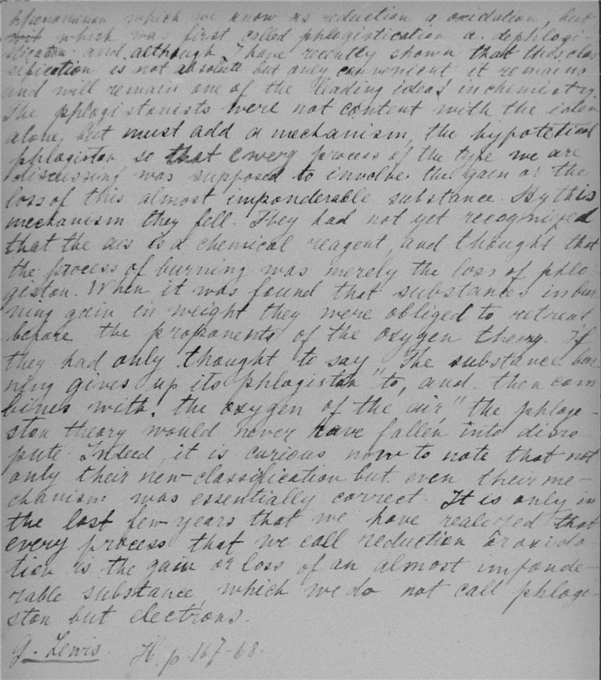 phenomenon which we know as reduction a oxidation, but
which was first called phlogistication a. dephlogi-
stication and although I have recently shown that this clas
sification is not absolute but only convenient it remains
and will remain one of the leading ideas in chemistry.
The phlogistonists were not content with the idea
alone, but must add a mechanism, the hypotetical
phlogiston so that every process of the type we are
discussing was supposed to involve the gain or the
loss of this almost imponderable substance. By this
mechanism they fell. They had not yet recognized
that the air is a chemical reagent, and thought that
the process of burning was merely the loss of phlo-
giston. When it was found that substances in bur
ning gain in weight they were obliged to retreat
before the proponents of the oxygen theory. If
they had only thought to say "The substance bur
ning gives up its phlogiston to, and then com
bines with, the oxygen of the air" the phlogi-
ston theory would never have fallen into disre-
pute. Indeed, it is curious now to note that not
only their new classification but even their me-
chanism was essentially correct. It is only in
the last few years that we have realized that
every process that we call reduction or oxida
tion is the gain or loss of an almost imponde-
rable substance, which we do not call phlogi-
ston but electrons.
G. Lewis. H. p. 167-68.